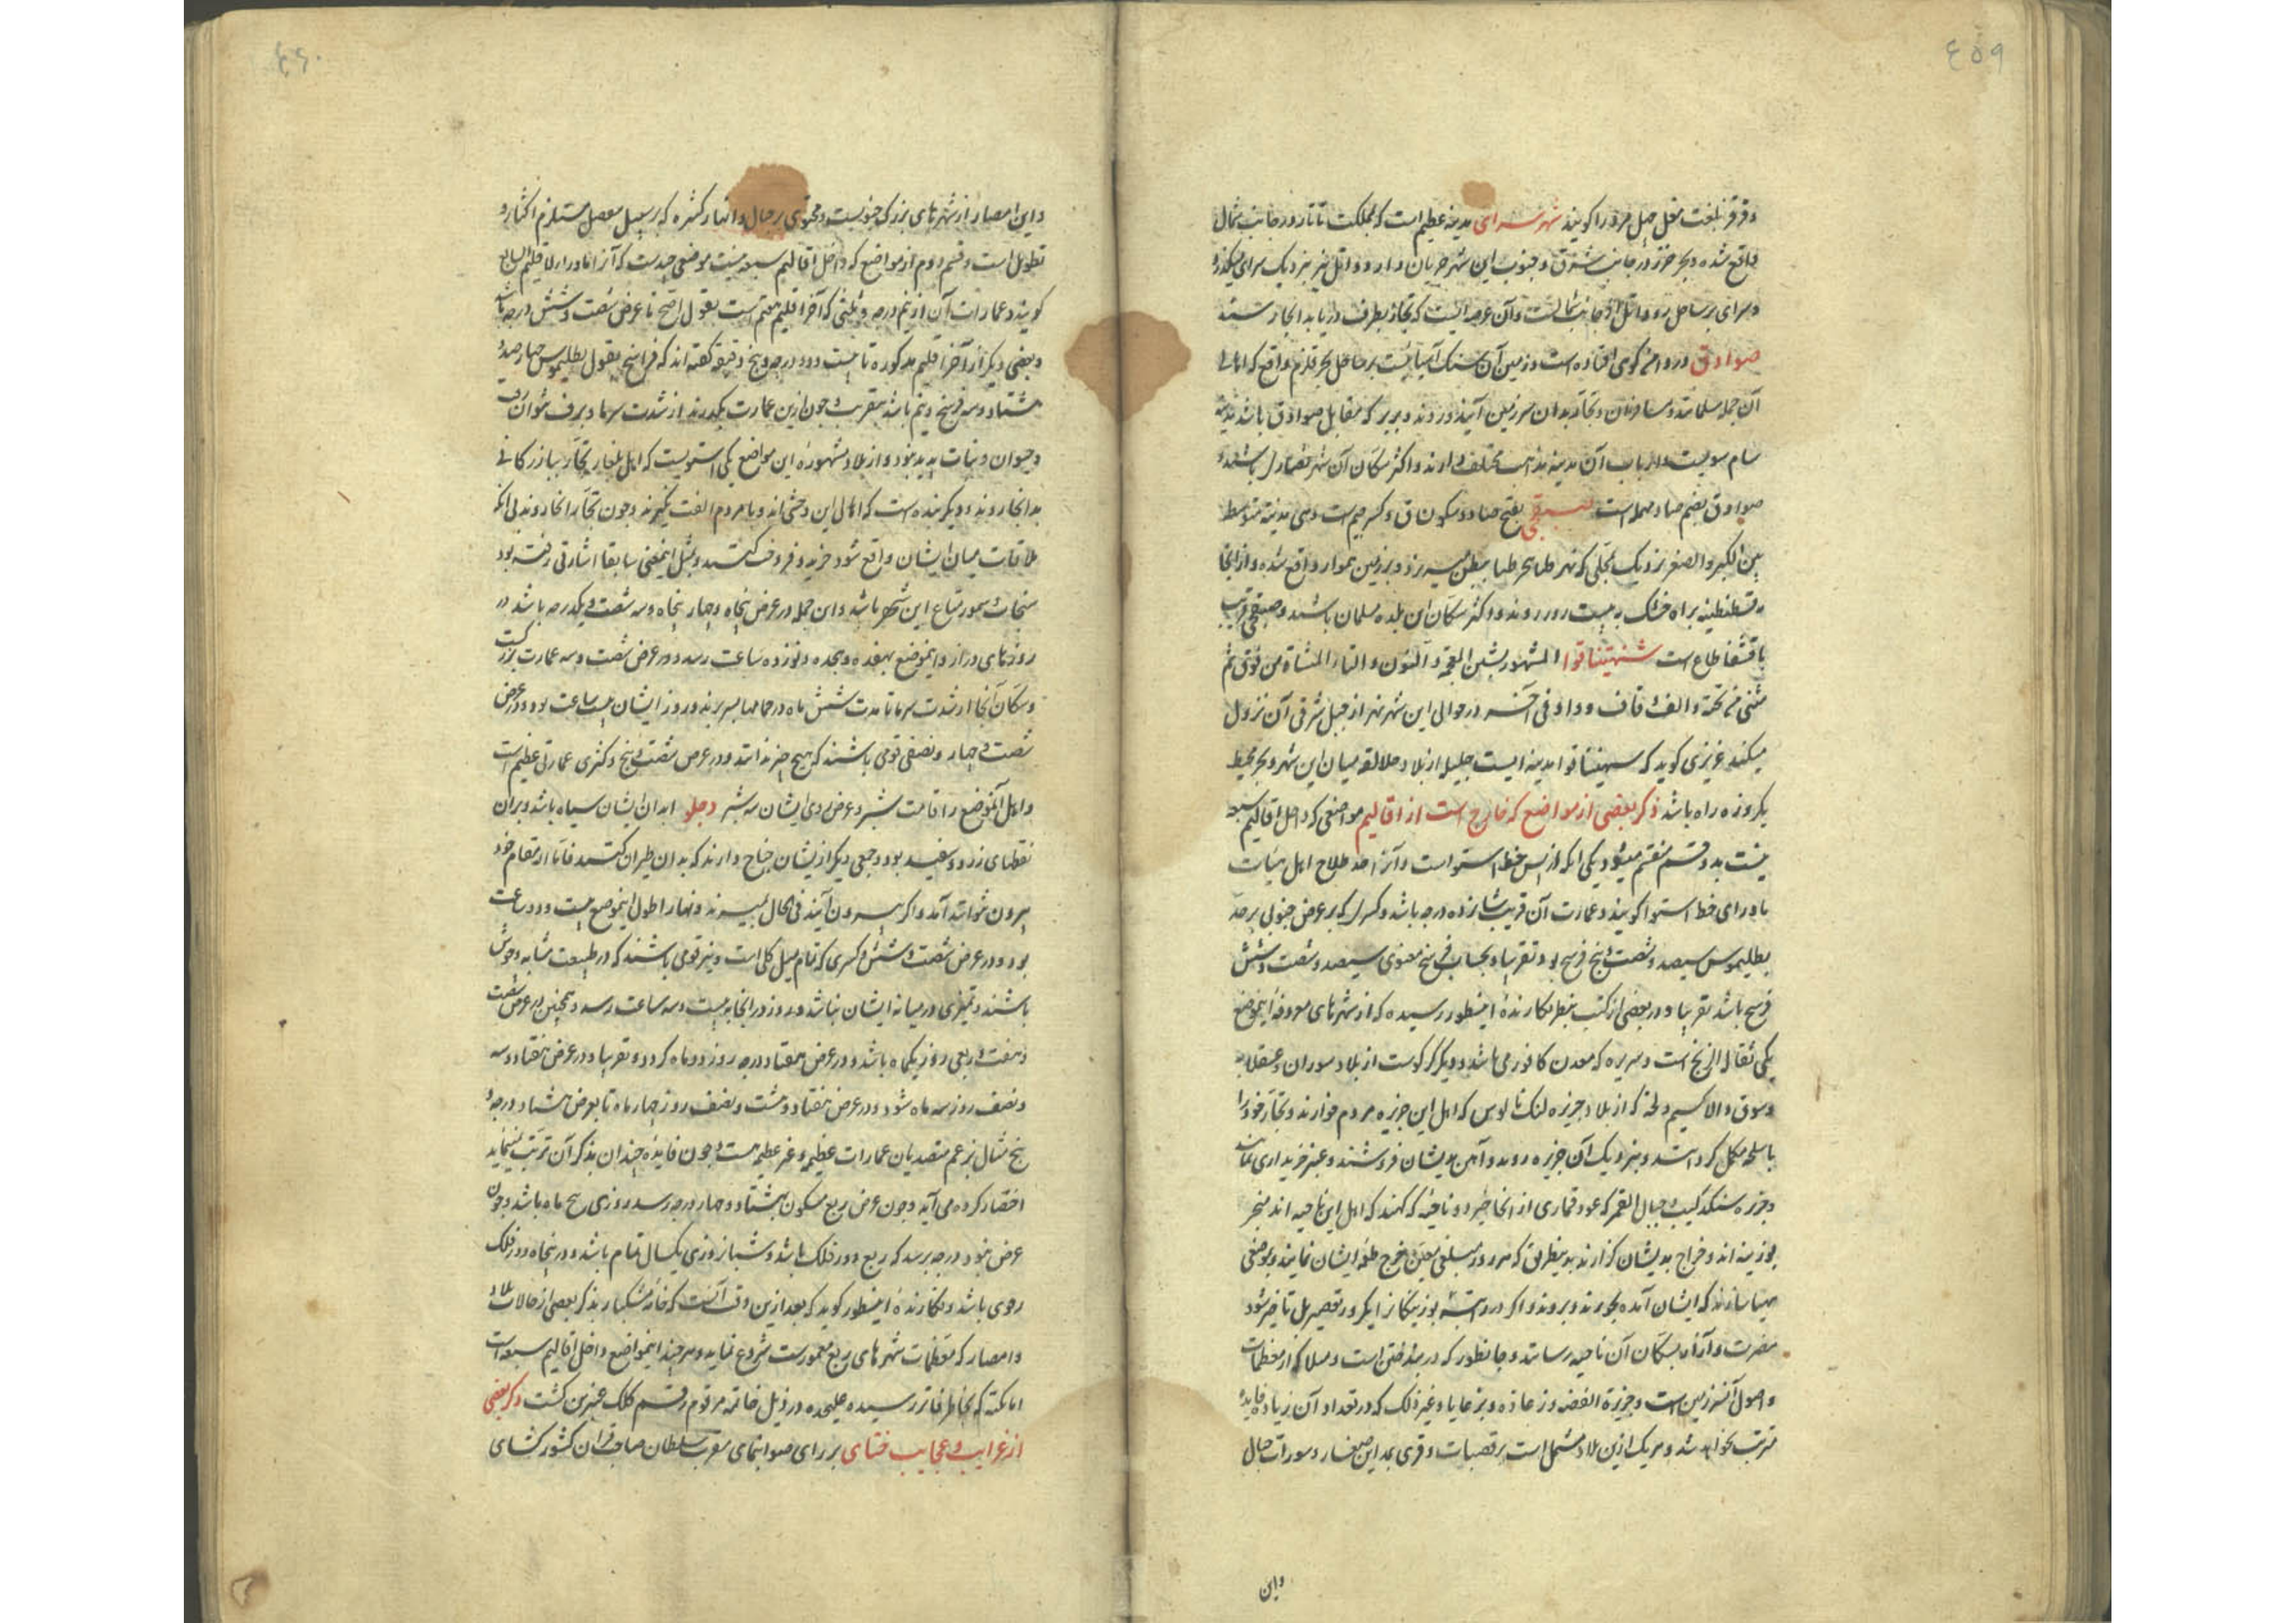 ٤٥٩
و قرقر بلغت مغل جبل مرد را کویند شهر سرای مدینه عظیم است که بمملکت تاتار در جانب شمال
واقع شده و بحر خزر در جانب شرق و جنوب این شهر جریان دارد و اتل نیز بنزدیک سرای میکذرد
و سرای بر ساحل رود اتل از جانب شمالست و آن عرصه ایست که تجار بطرف دریا بدانجا رسند
صوادق در دامن کوهی افتاده است و زمین آن سنک آسیاییست بر ساحل بحر قلزم واقع که اهالی
آن جمله مسلمانند و مسافران و تجار بدان سرزمین آیند و روند و بربر که مقابل صوادق باشد
سام سویست و ارباب آن مدینه مذاهب مختلف دارند و اکثر سکان آن شهر نصاری باشند و
صوادق بضم صاد مهمله است صقجی بفتح صاد و سکون ق و کسر جیم است و هی مدینة متوسط
بین الکبر و الصغر نزدیک بمحلی که نهر طنا ببحر میریزد و بر زمین هموار واقع شده و از آنجا
به قسطنطنیه براه خشک به بیست روز روند و اکثر سکان این بلده مسلمان باشند و صقجی قریب
باقشقا طاع است شنتیناقوا المشهور بشین المعجمة و النون و التاء المثناة من فوق ثم
مثنی من تحته و الف و قاف و واو فی آخره در حوالی این شهر نهر از جبل شرقی آن نزول
میکند عزیزی کوید که سهیتناقوا مدینه ایست جلیل از بلاد جلالقه میان این شهر و بحر محیط
یکروزه راه باشد ذکر بعضی از مواضع که خارج است از اقالیم مواضعی که داخل اقالیم سبعه
نیست بدو قسم منقسم میشود یکی انکه از پس خط استوا است و آنرا اصطلاح اهل هیأت
ماورای خط استوا کویند و عمارت آن قریب شانزده درجه باشد و کسری که بر عرض جنوبی بر حد
بطلیموس سیصد و شصت و پنج فرسخ بود تقریبا و بحساب فرسخ معنوی سیصد و شصت و شش
فرسخ باشد تقریبا و در بعضی از کتب بنظر نکارنده اینسطور رسیده که از شهرهای معروفه اینموضع
یکی نقاله الزنج است و سریره که معدن کافور می باشد و دیکر کرکوست از بلاد سوران و عسقلابه
و سوق والاکسیم و لحه که از بلاد جزیره لنک نالوس که اهل این جزیره مردم خوارند و تجار خود را
باسلحه مکمل کرده باشند و بنزدیک آن جزیره روند و آهن بدیشان فروشند و عنبر خریداری نمایند
و جزیره سنکدیب و جبال القمر که عود قماری از انجا خیزد و ناحیه که کهند که اهل این ناحیه اند
بوزینه اند و خراج بدیشان کزارند بدینطریق که هر روز مبلغی معین خرج طعمه ایشان نمایند و بموضعی
مهیا سازند که ایشان آمده بخورند و بروند و اکر در راتبه بوزینکان اندکی تقصیر بل تاخیر شود
مضرت و آزاه بسکان آن ناحیه رسانند و جانطور که در بتدختن است و مسلا که از معظمات
و اصول آنسرزمین است و جزیرة الفضه و زعاده و بزعایا و غیر ذلک که در تعداد آن زیاده فایده
مترتب نخواهد شد و هر یک ازین بلاد مشتمل است بر قصبات و قری بعد این صغار و سورات جبال
و این
٤٦٠
و این امصار از شهرهای بزرک جنوبیست و محتوی بر جبال و انهار کثیره که بر سبیل مفصل مستلزم اکثار و
تطویل است و قسم دوم از مواضع که داخل اقالیم سبعه نیست موضعی چندست که آنرا ماورای اقلیم السابع
کویند و عمارات آن از نیم درجه و ثلثی که آخر اقلیم هفتم است بقول اصح تا عرض شصت و شش درجه باشد
و بعضی دیکر از آخر اقلیم مذکوره تا بیست و دو درجه و پنج دقیقه کفته اند که فراسخ بقول بطلیموس چهار صد و
هشتاد و سه فرسخ و نیم باشد بتقریب و چون ازین عمارت بکذرند از شدت سرما و برف نتوان رفت
و حیوان و نبات پدید نبود و از بلاد مشهوره این مواضع یکی استوبیست که اهل بلغار بتجار ببازرکانی
بدانجا روند و دیکر بنده است که اهالی این وحشی اند و با مردم الفت نکیرند و چون تجار انجا روند بی انکه
ملاقات میان ایشان واقع شود خرید و فروخت کنند و بمثل اینمعنی سابقا اشارتی رفته بود
سنجاب و سمور متاع این شهر باشد و این جمله در عرض پنجاه و چهار پنجاه و سه شصت و یکدرجه باشد در
روزهای دراز و اینموضع بهفده و هجده و نوزده ساعت رسد و در عرض شصت و سه عمارت بزرکست
و سکان آنجا از شدت سرما تا مدت شش ماه در حمامها بسر برند و روز ایشان بیست ساعت بود و در عرض
شصت و چهار و نصفی قومی باشند که هیچ چیز ندانند و در عرض شصت و پنج و کسری عمارتی عظیم است
و اهل آنموضع را قامت شبر و عرض روی ایشان سه شبر و جلو ابدان ایشان سیاه باشد و بران
نقطهای زرد و سفید بود و جمعی دیکر از ایشان جناح دارند که بدان طیران کنند فاما از مقام خود
بیرون نتوانند آمد و اکر بیرون آیند فی الحال بمیرند و نهار اطول اینموضع بیست و دو ساعت
بود و در عرض شصت و شش و کسری که تمام میل کلی است و نیز قومی باشند که در طبیعت مشابه وحوش
باشند و تمیزی در میانه ایشان نباشد و روز در انجا به بیست و سه ساعت رسد و همچنین در عرض شصت
و هفت و ربعی روز یکماه باشد و در عرض هفتاد درجه روز دو ماه کردد و تقریبا و در عرض هفتاد و سه
و نصف روز سه ماه شود و در عرض هفتاد و هشت و نصف روز چهار ماه تا بعرض هشتاد درجه و
پنج شمال بزعم متصدیان عمارات عظیم و غیر عظیم هست و چون فایده چندان بذکر آن ترتب نمینماید
اختصار کرده می آید و چون عرض ربع مسکون بهشتاد و چهار درجه رسد روزی پنج ماه باشد و چون
عرض بنود درجه برسد که ربع دور فلک باشد و شبانروزی یکسال تمام باشد و در پنجاه دور فلک
رحوی باشد و نکارنده اینسطور کوید که بعد ازین وقت آنست که خامه مشکبار بذکر بعضی از حالات بلاد
و امصار که معظمات شهرهای ربع معمورست شروع نماید و هر چند اینمواضع داخل اقالیم سبعه است
اما نکته که بخاطر فاتر رسیده علیحده در ذیل خاتمه مرقوم رقم کلک عنبرین کشت ذکر بعضی
از غرایب و عجایب ختای بر رای صوابنمای مقرب سلطان صاحب قران کشور کشای